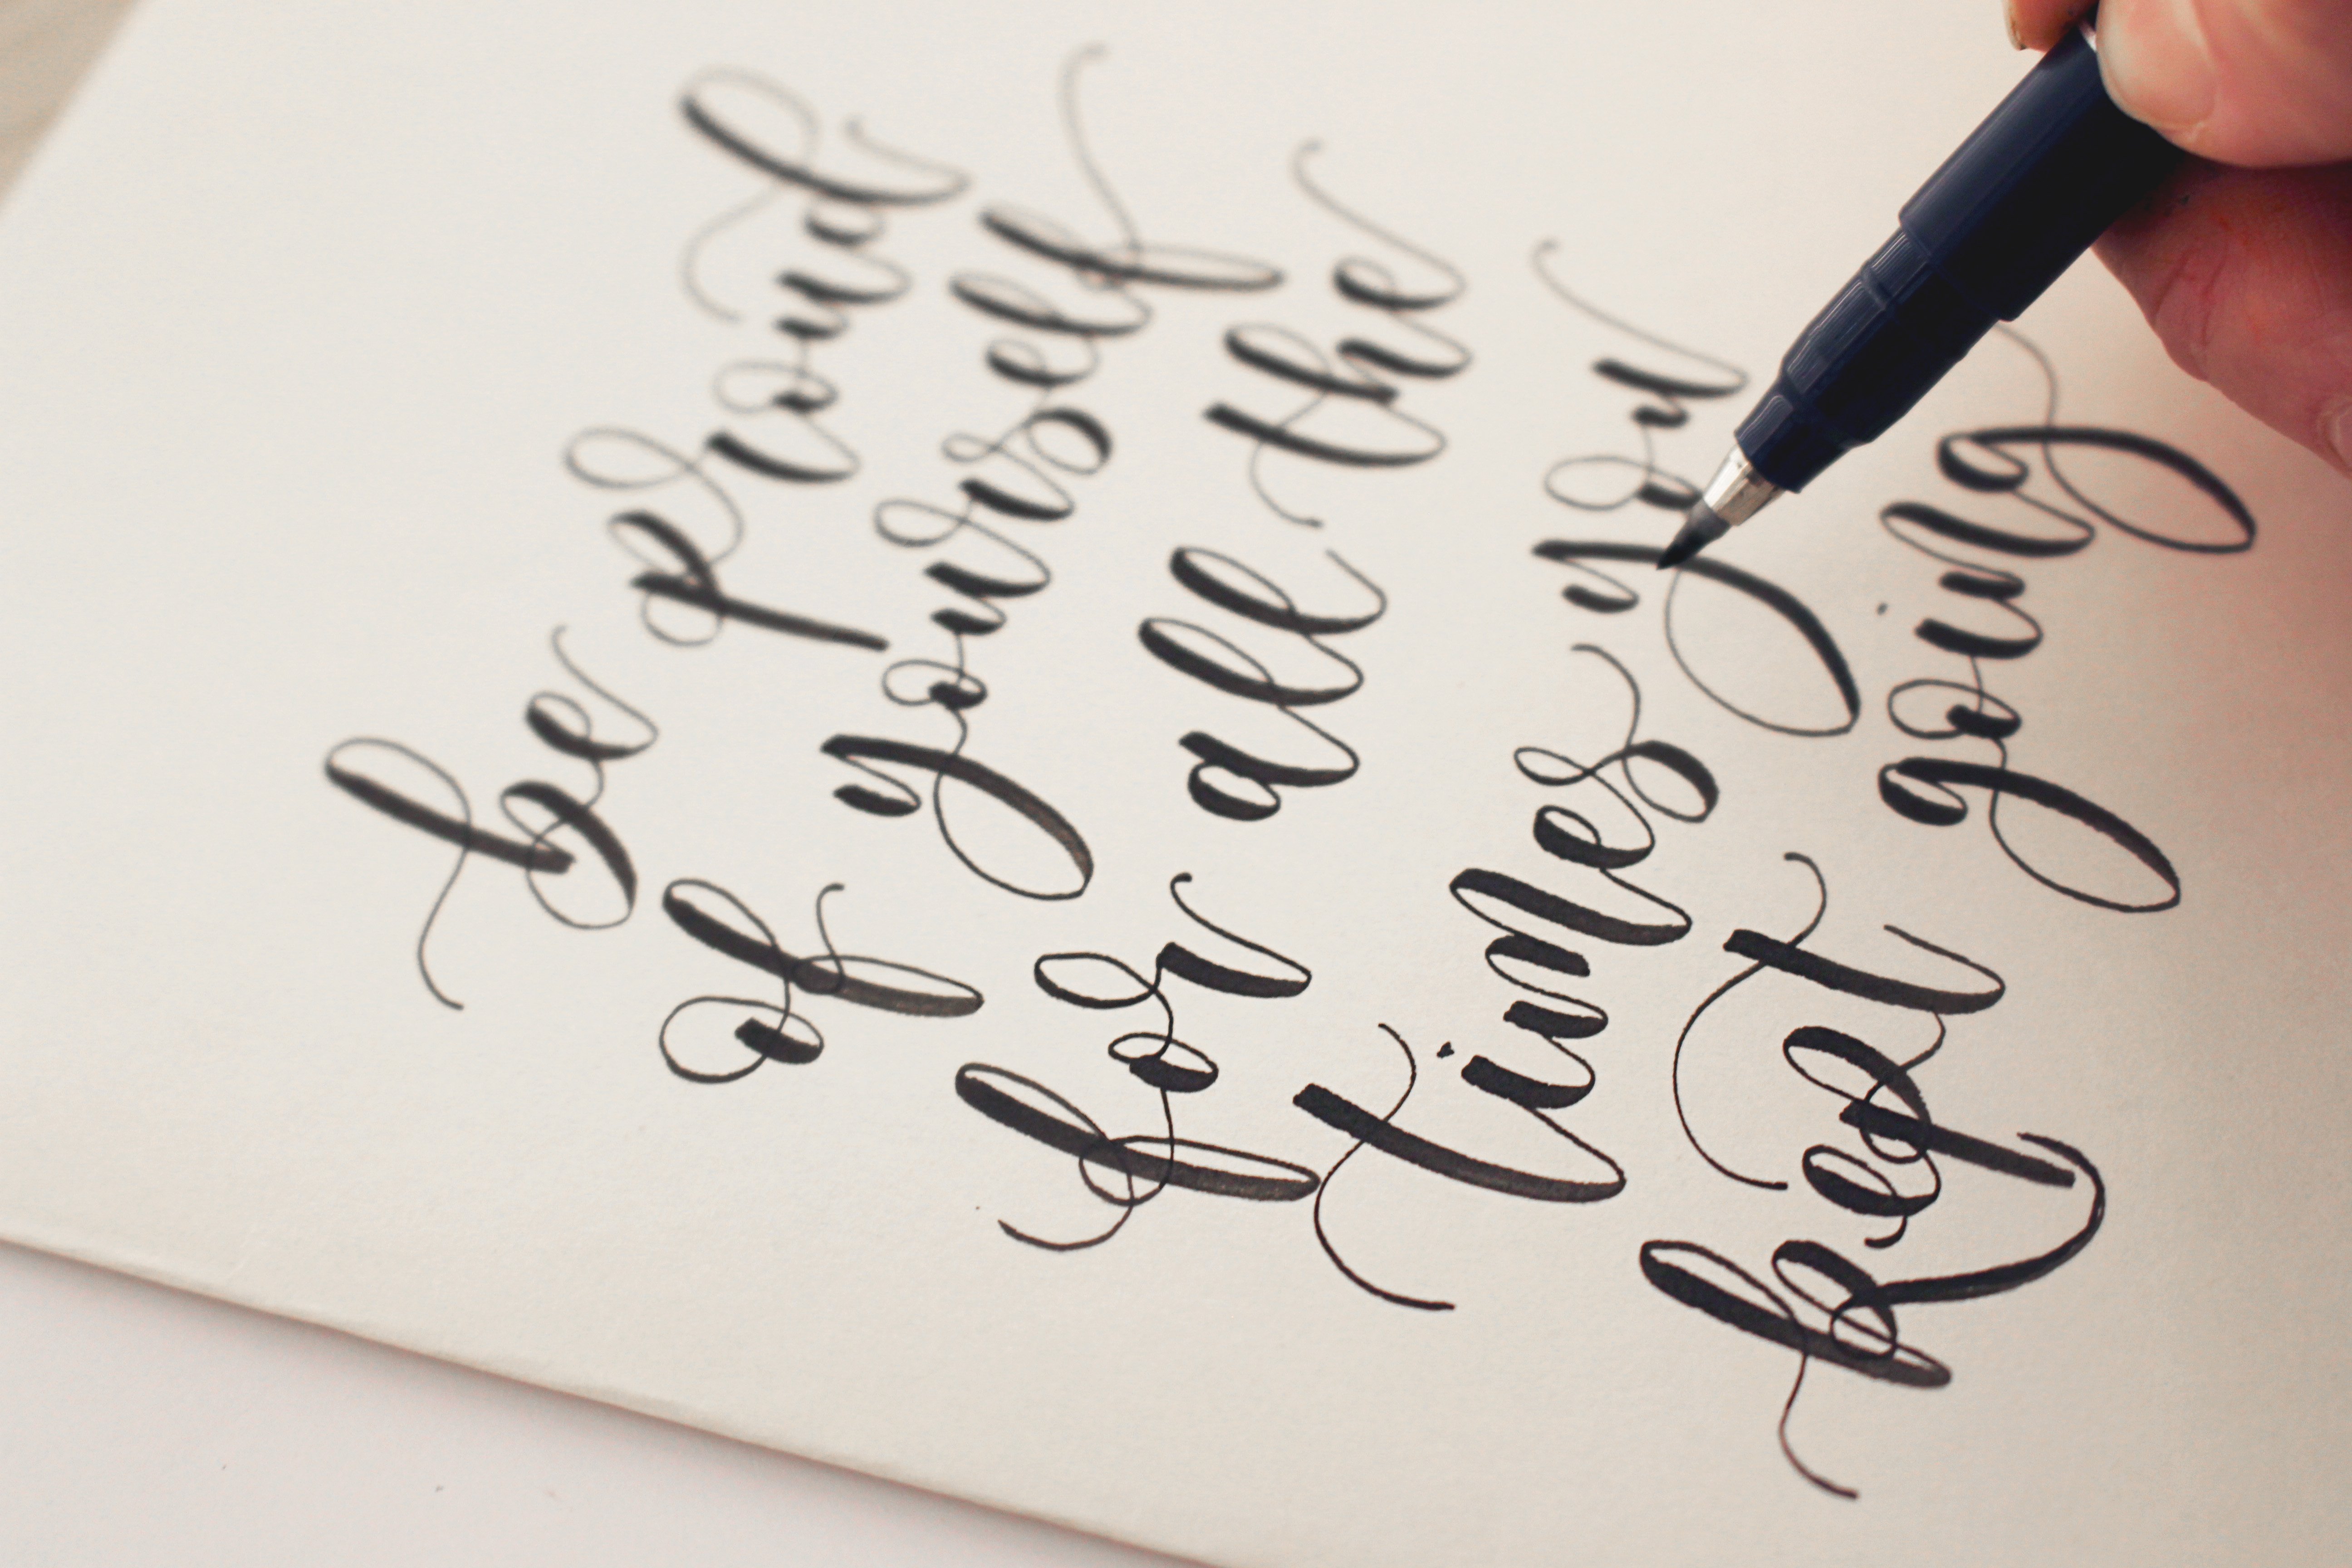 be proud
of yourself
for all the
times you
kept going